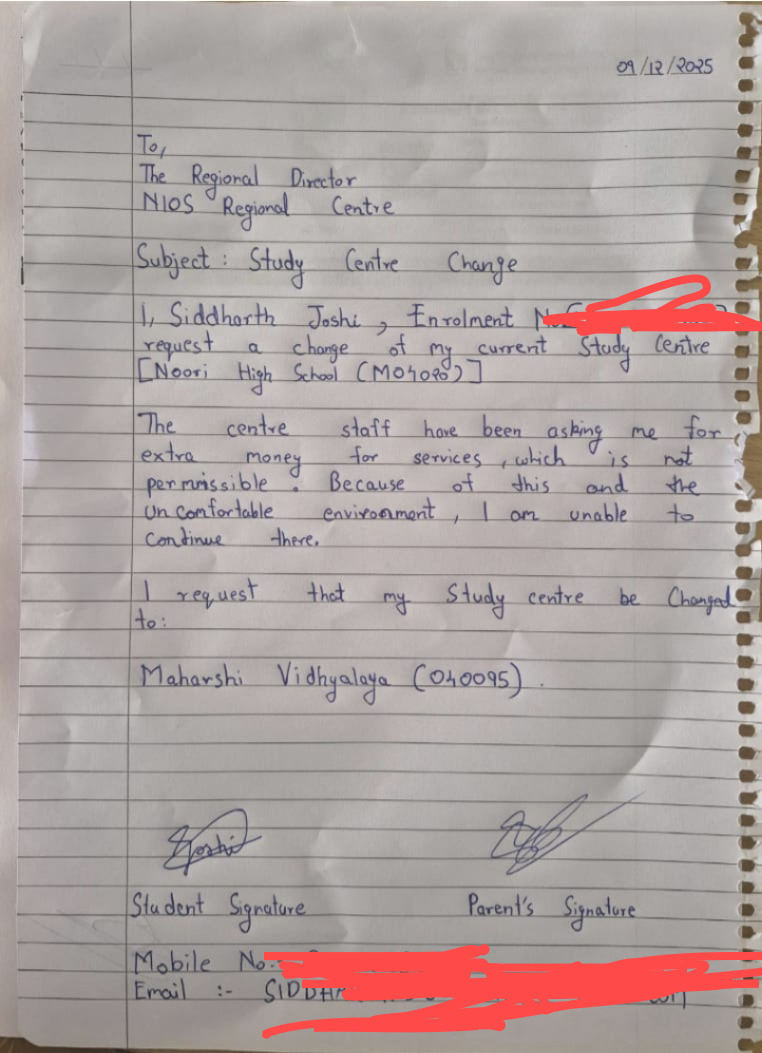 09/12/2025
To,
The Regional Director
NIOS Regional Centre
Subject : Study Centre Change
I, Siddharth Joshi, Enrolment
request a change of my current Study Centre
[Noori High School (M04020)]
The centre staff have been asking me for
extra money for services, which is not
permissible. Because of this and the
uncomfortable environment, I am unable to
continue there.
I request that my Study centre be Changed
to:
Maharshi Vidhyalaya (040095).
Joshi
Student Signature Parent's Signature
Mobile No.
Email :-